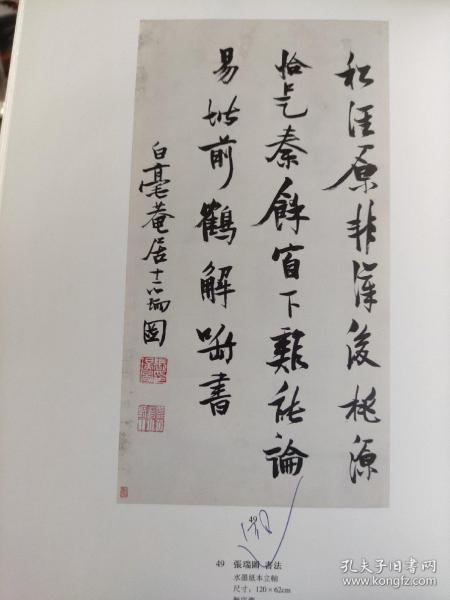 原非漢後桃源
恰是秦餘窗下雞能論
易堦前鶴解啣書
白毫菴居士瑞圖
49
49 張瑞圖 書法
水墨紙本立軸
尺寸：120×62cm
孔夫子旧书网